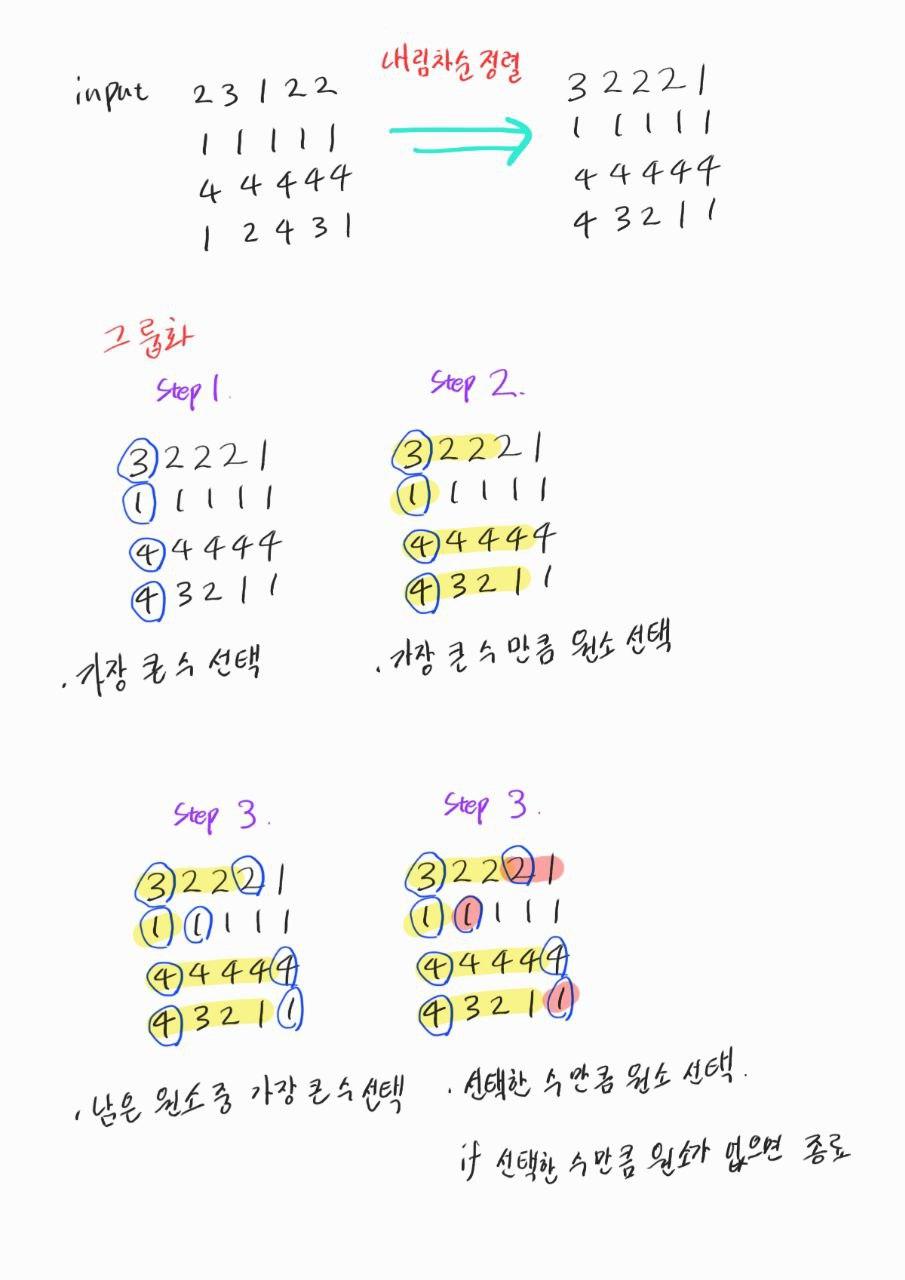 내림차순 정렬
input 2 3 1 2 2 3 2 2 2 1
1 1 1 1 1 1 1 1 1 1
4 4 4 4 4 4 4 4 4 4
1 2 4 3 1 4 3 2 1 1
그룹화
Step 1. Step 2.
3 2 2 2 1 3 2 2 2 1
1 1 1 1 1 1 1 1 1 1
4 4 4 4 4 4 4 4 4 4
4 3 2 1 1 4 3 2 1 1
. 가장 큰 수 선택 . 가장 큰 수 만큼 원소 선택
Step 3. Step 3.
3 2 2 2 1 3 2 2 2 1
1 1 1 1 1 1 1 1 1 1
4 4 4 4 4 4 4 4 4 4
4 3 2 1 1 4 3 2 1 1
. 남은 원소 중 가장 큰 수 선택 . 선택한 수 만큼 원소 선택.
if 선택한 수만큼 원소가 없으면 종료